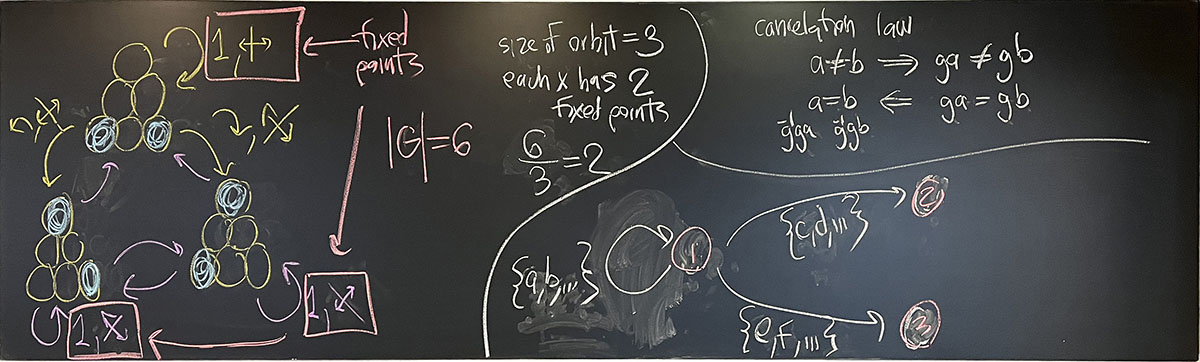 1, ↔
fixed
points
|G|=6
1,
1,
size of orbit = 3
each x has 2
fixed points
6/3 = 2
cancelation law
a≠b ⇒ ga ≠ gb
a=b ⇐ ga = gb
g⁻¹ga g⁻¹gb
{a,b,...}
1
{c,d,...}
2
{e,f,...}
3